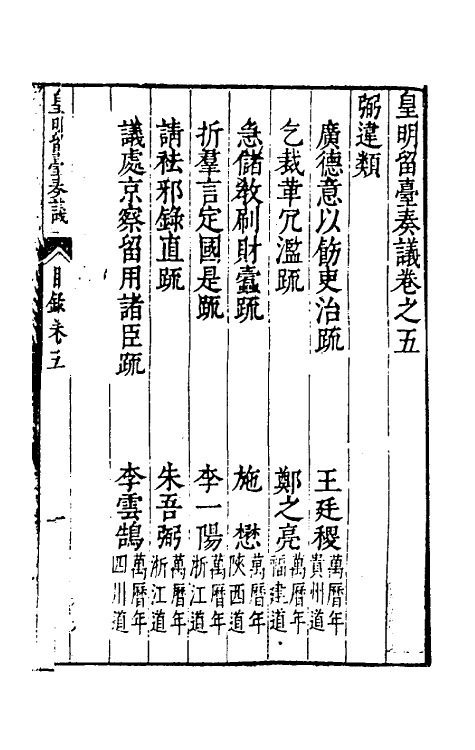 皇明留臺奏議卷之五
弼違類
廣德意以飭吏治疏　王廷稷　萬曆年貴州道
乞裁革冗濫疏　鄭之亮　萬曆年福建道
急儲敎刷財蠹疏　施懋　萬曆年陝西道
折羣言定國是疏　李一陽　萬曆年浙江道
請祛邪錄直疏　朱吾弼　萬曆年浙江道
議處京察留用諸臣疏　李雲鵠　萬曆年四川道
皇明留臺奏議　目錄卷五　一